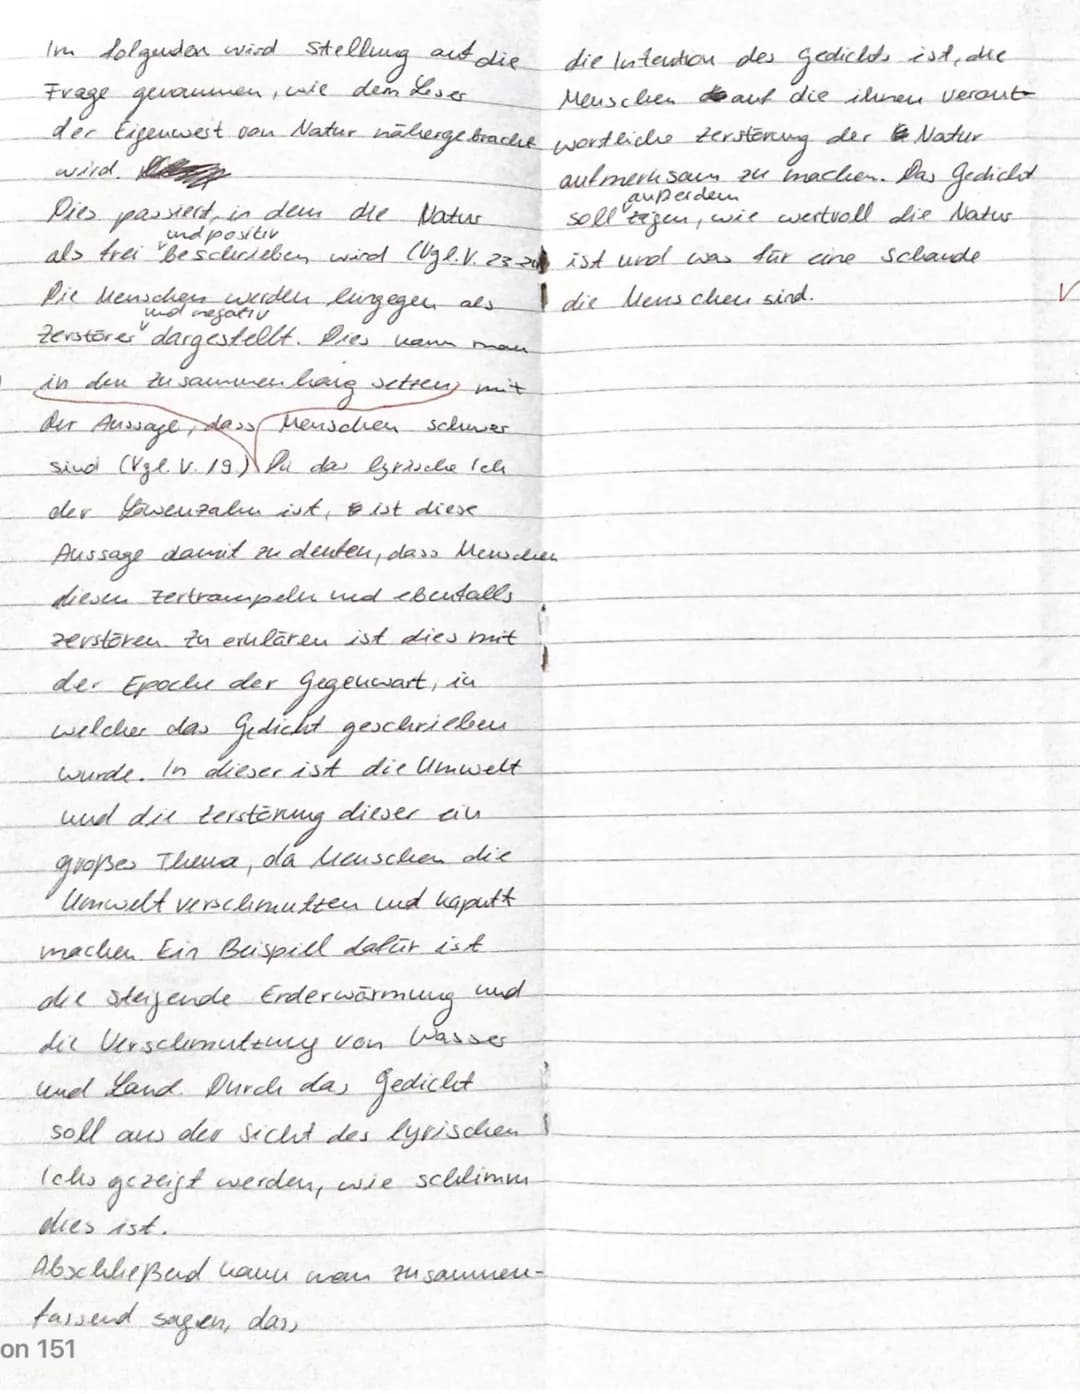 Im folgenden wird Stellung auf die
Frage genommen, wie dem Leser
der Eigenwert von Natur nähergebracht
wird.
Dies passiert, in dem die Natur
und positiv
als frei beschrieben wird (Vgl. V. 23-24)
Die Menschen werden hingegen als
und negativ
Zerstörer dargestellt. Dies kann man
in den Zusammenhang setzen, mit
der Aussage, dass Menschen schwer
sind (Vgl. V. 19.) Da das lyrische Ich
der Löwenzahn ist, ist diese
Aussage damit zu deuten, dass Menschen
diesen zertrampeln und ebenfalls
zerstören. Zu erklären ist dies mit
der Epoche der Gegenwart, in
welcher das Gedicht geschrieben
wurde. In dieser ist die Umwelt
und die Zerstörung dieser ein
großes Thema, da Menschen die
Umwelt verschmutzen und kaputt
machen. Ein Beispiel dafür ist
die steigende Erderwärmung und
die Verschmutzung von Wasser
und Land. Durch das Gedicht
soll aus der Sicht des lyrischen
Ichs gezeigt werden, wie schlimm
dies ist.
Abschließend kann man zusammen-
fassend sagen, dass
on 151
die Intention des Gedichts ist, die
Menschen auf die ihnen verant-
wortliche Zerstörung der Natur
aufmerksam zu machen. Das Gedicht
außerdem
soll zeigen, wie wertvoll die Natur
ist und was für eine Schande
die Menschen sind.